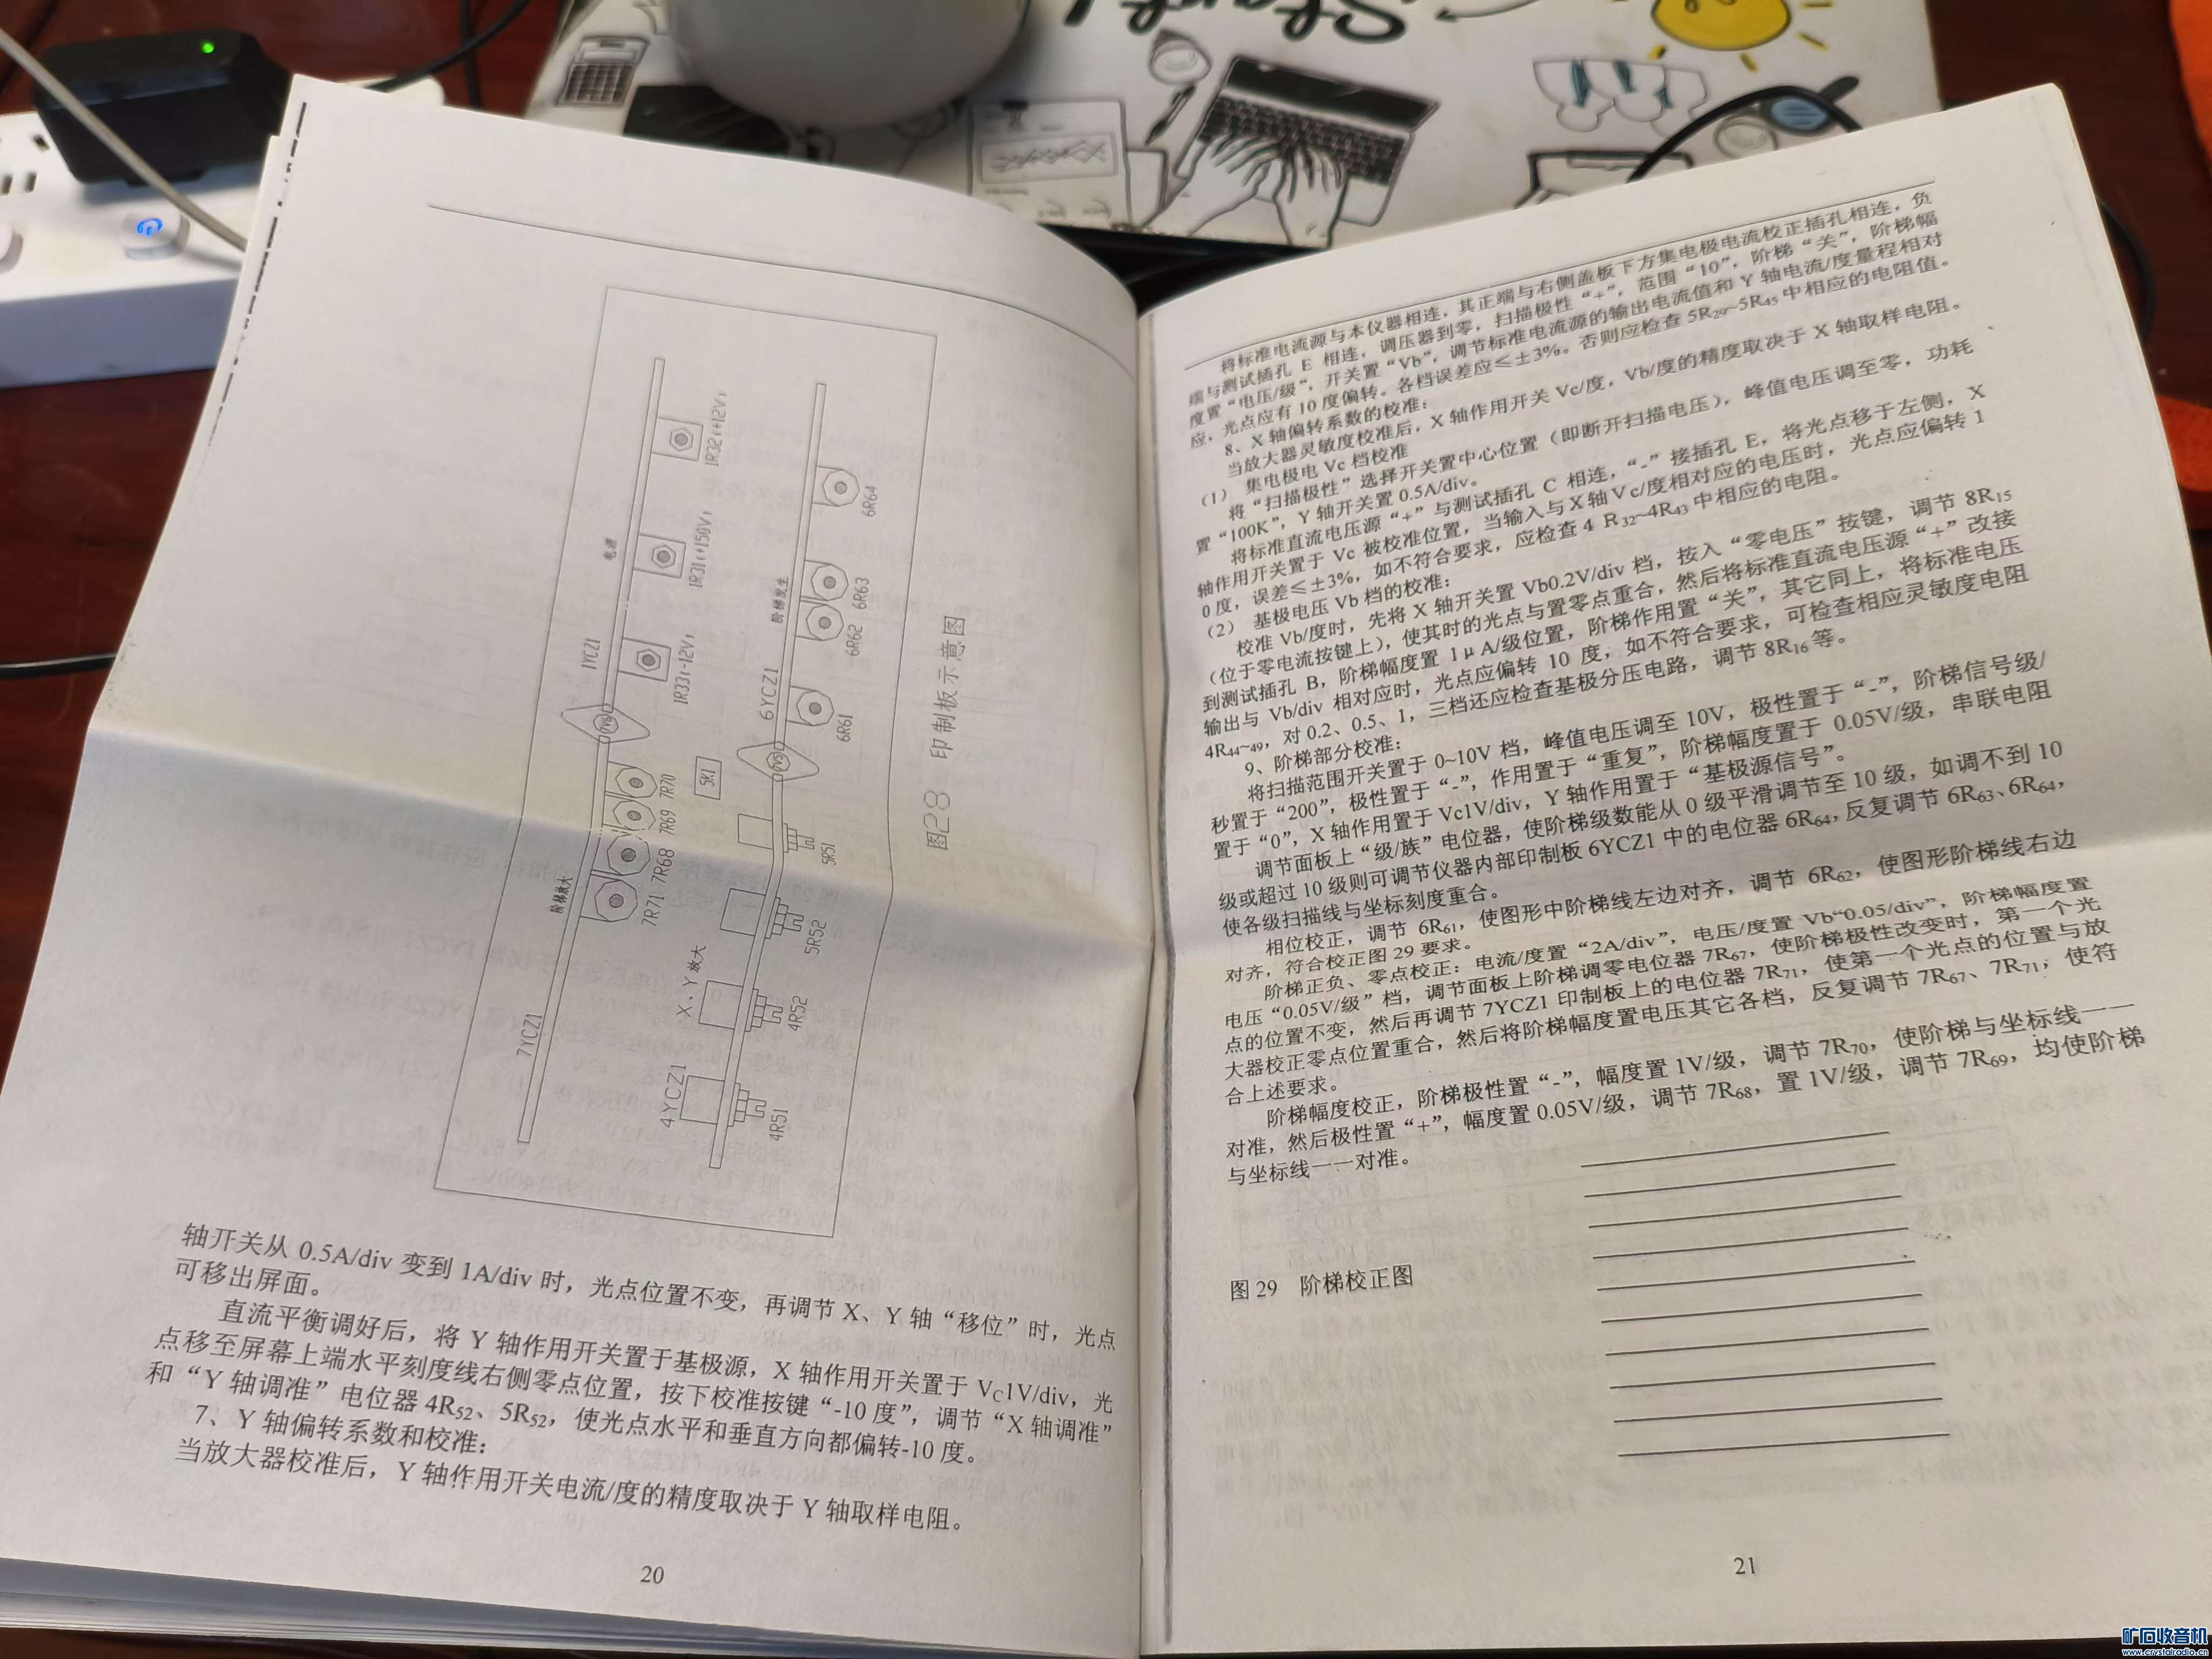 电源
1YCZ1
1R32(+12V)
1R31(+150V)
1R33(-12V)
阶梯放大
7YCZ1
7R71 7R68 7R69 7R70
5K1
阶梯发生
6YCZ1
6R61
6R62
6R63
6R64
X、Y放大
4YCZ1
4R51
4R52
5R52
5R51
图28 印制板示意图
轴开关从 0.5A/div 变到 1A/div 时，光点位置不变，再调节 X、Y 轴“移位”时，光点
可移出屏面。
直流平衡调好后，将 Y 轴作用开关置于基极源，X 轴作用开关置于 VC1V/div，光
点移至屏幕上端水平刻度线右侧零点位置，按下校准按键“-10 度”，调节“X 轴调准”
和“Y 轴调准”电位器 4R52、5R52，使光点水平和垂直方向都偏转-10 度。
7、Y 轴偏转系数和校准：
当放大器校准后，Y 轴作用开关电流/度的精度取决于 Y 轴取样电阻。
20
将标准电流源与本仪器相连，其正端与右侧盖板下方集电极电流校正插孔相连，负
端与测试插孔 E 相连，调压器到零，扫描极性“+”，范围“10”，阶梯“关”，阶梯幅
度置“电压/级”，开关置“Vb”，调节标准电流源的输出电流值和 Y 轴电流/度量程相对
应，光点应有 10 度偏转。各档误差应≤±3%。否则应检查 5R29~5R45 中相应的电阻值。
8、X 轴偏转系数的校准：
当放大器灵敏度校准后，X 轴作用开关 Vc/度，Vb/度的精度取决于 X 轴取样电阻。
（1） 集电极电 Vc 档校准
将“扫描极性”选择开关置中心位置（即断开扫描电压），峰值电压调至零，功耗
置“100K”，Y 轴开关置 0.5A/div。
将标准直流电压源“+”与测试插孔 C 相连，“-”接插孔 E，将光点移于左侧，X
轴作用开关置于 Vc 被校准位置，当输入与X轴Vc/度相对应的电压时，光点应偏转 1
0 度，误差≤±3%，如不符合要求，应检查 4 R32~4R43 中相应的电阻。
（2） 基极电压 Vb 档的校准：
校准 Vb/度时，先将 X 轴开关置 Vb0.2V/div 档，按入“零电压”按键，调节 8R15
（位于零电流按键上），使其时的光点与置零点重合，然后将标准直流电压源“+”改接
到测试插孔 B，阶梯幅度置 1μA/级位置，阶梯作用置“关”，其它同上，将标准电压
输出与 Vb/div 相对应时，光点应偏转 10 度，如不符合要求，可检查相应灵敏度电阻
4R44~49，对 0.2、0.5、1，三档还应检查基极分压电路，调节 8R16 等。
9、阶梯部分校准：
将扫描范围开关置于 0~10V 档，峰值电压调至 10V，极性置于“-”，阶梯信号级/
秒置于“200”，极性置于“-”，作用置于“重复”，阶梯幅度置于 0.05V/级，串联电阻
置于“0”，X 轴作用置于 Vc1V/div，Y 轴作用置于“基极源信号”。
调节面板上“级/族”电位器，使阶梯级数能从 0 级平滑调节至 10 级，如调不到 10
级或超过 10 级则可调节仪器内部印制板 6YCZ1 中的电位器 6R64，反复调节 6R63、6R64，
使各级扫描线与坐标刻度重合。
相位校正，调节 6R61，使图形中阶梯线左边对齐，调节 6R62，使图形阶梯线右边
对齐，符合校正图 29 要求。
阶梯正负、零点校正：电流/度置“2A/div”，电压/度置 Vb“0.05/div”，阶梯幅度置
电压“0.05V/级”档，调节面板上阶梯调零电位器 7R67，使阶梯极性改变时，第一个光
点的位置不变，然后再调节 7YCZ1 印制板上的电位器 7R71，使第一个光点的位置与放
大器校正零点位置重合，然后将阶梯幅度置电压其它各档，反复调节 7R67、7R71，使符
合上述要求。
阶梯幅度校正，阶梯极性置“-”，幅度置 1V/级，调节 7R70，使阶梯与坐标线一一
对准，然后极性置“+”，幅度置 0.05V/级，调节 7R68，置 1V/级，调节 7R69，均使阶梯
与坐标线一一对准。
图 29 阶梯校正图
21
矿石收音机
www.crystalradio.cn